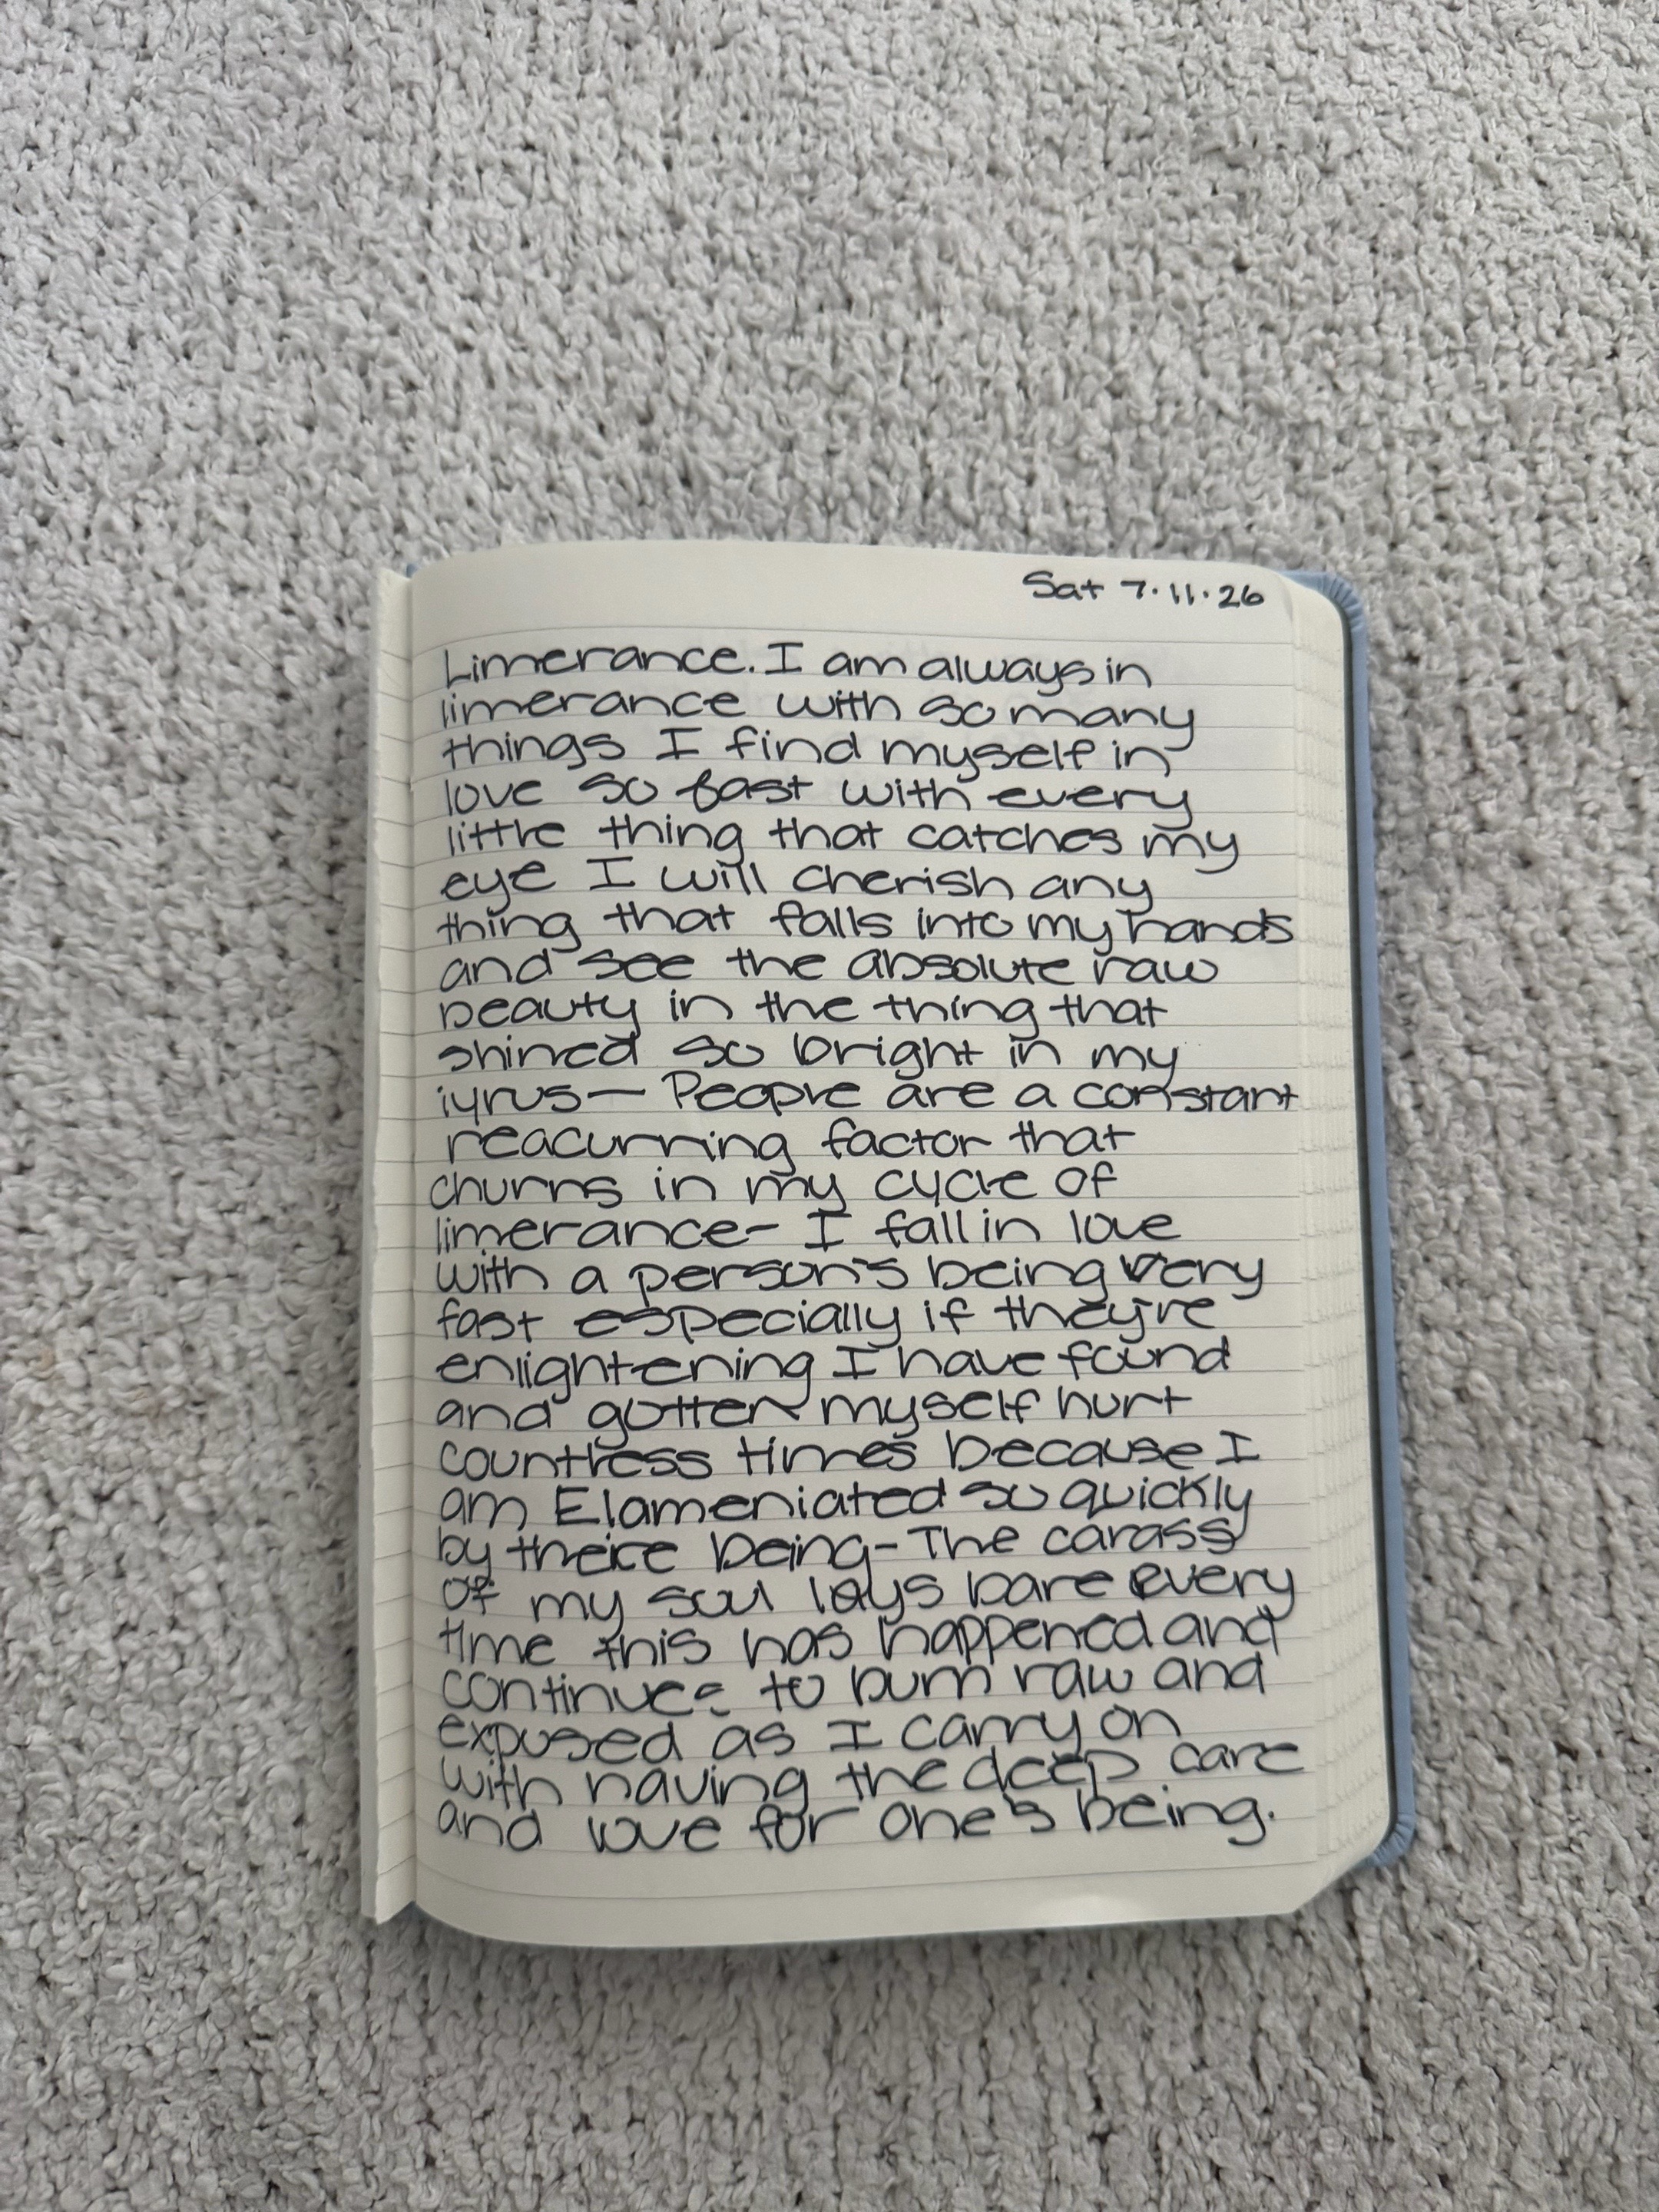 Sat 7.11.26
Limerance. I am always in
limerance with so many
things I find myself in
love so fast with every
little thing that catches my
eye I will cherish any
thing that falls into my hands
and see the absolute raw
beauty in the thing that
shined so bright in my
iyrus— People are a constant
reacurring factor that
churns in my cycle of
limerance- I fall in love
with a person's being very
fast especially if they're
enlightening I have found
and gotten myself hurt
countless times because I
am Elameniated so quickly
by theire being- The carass
of my soul lays bare every
time this has happened and
continues to burn raw and
exposed as I carry on
with having the deep care
and love for one's being.